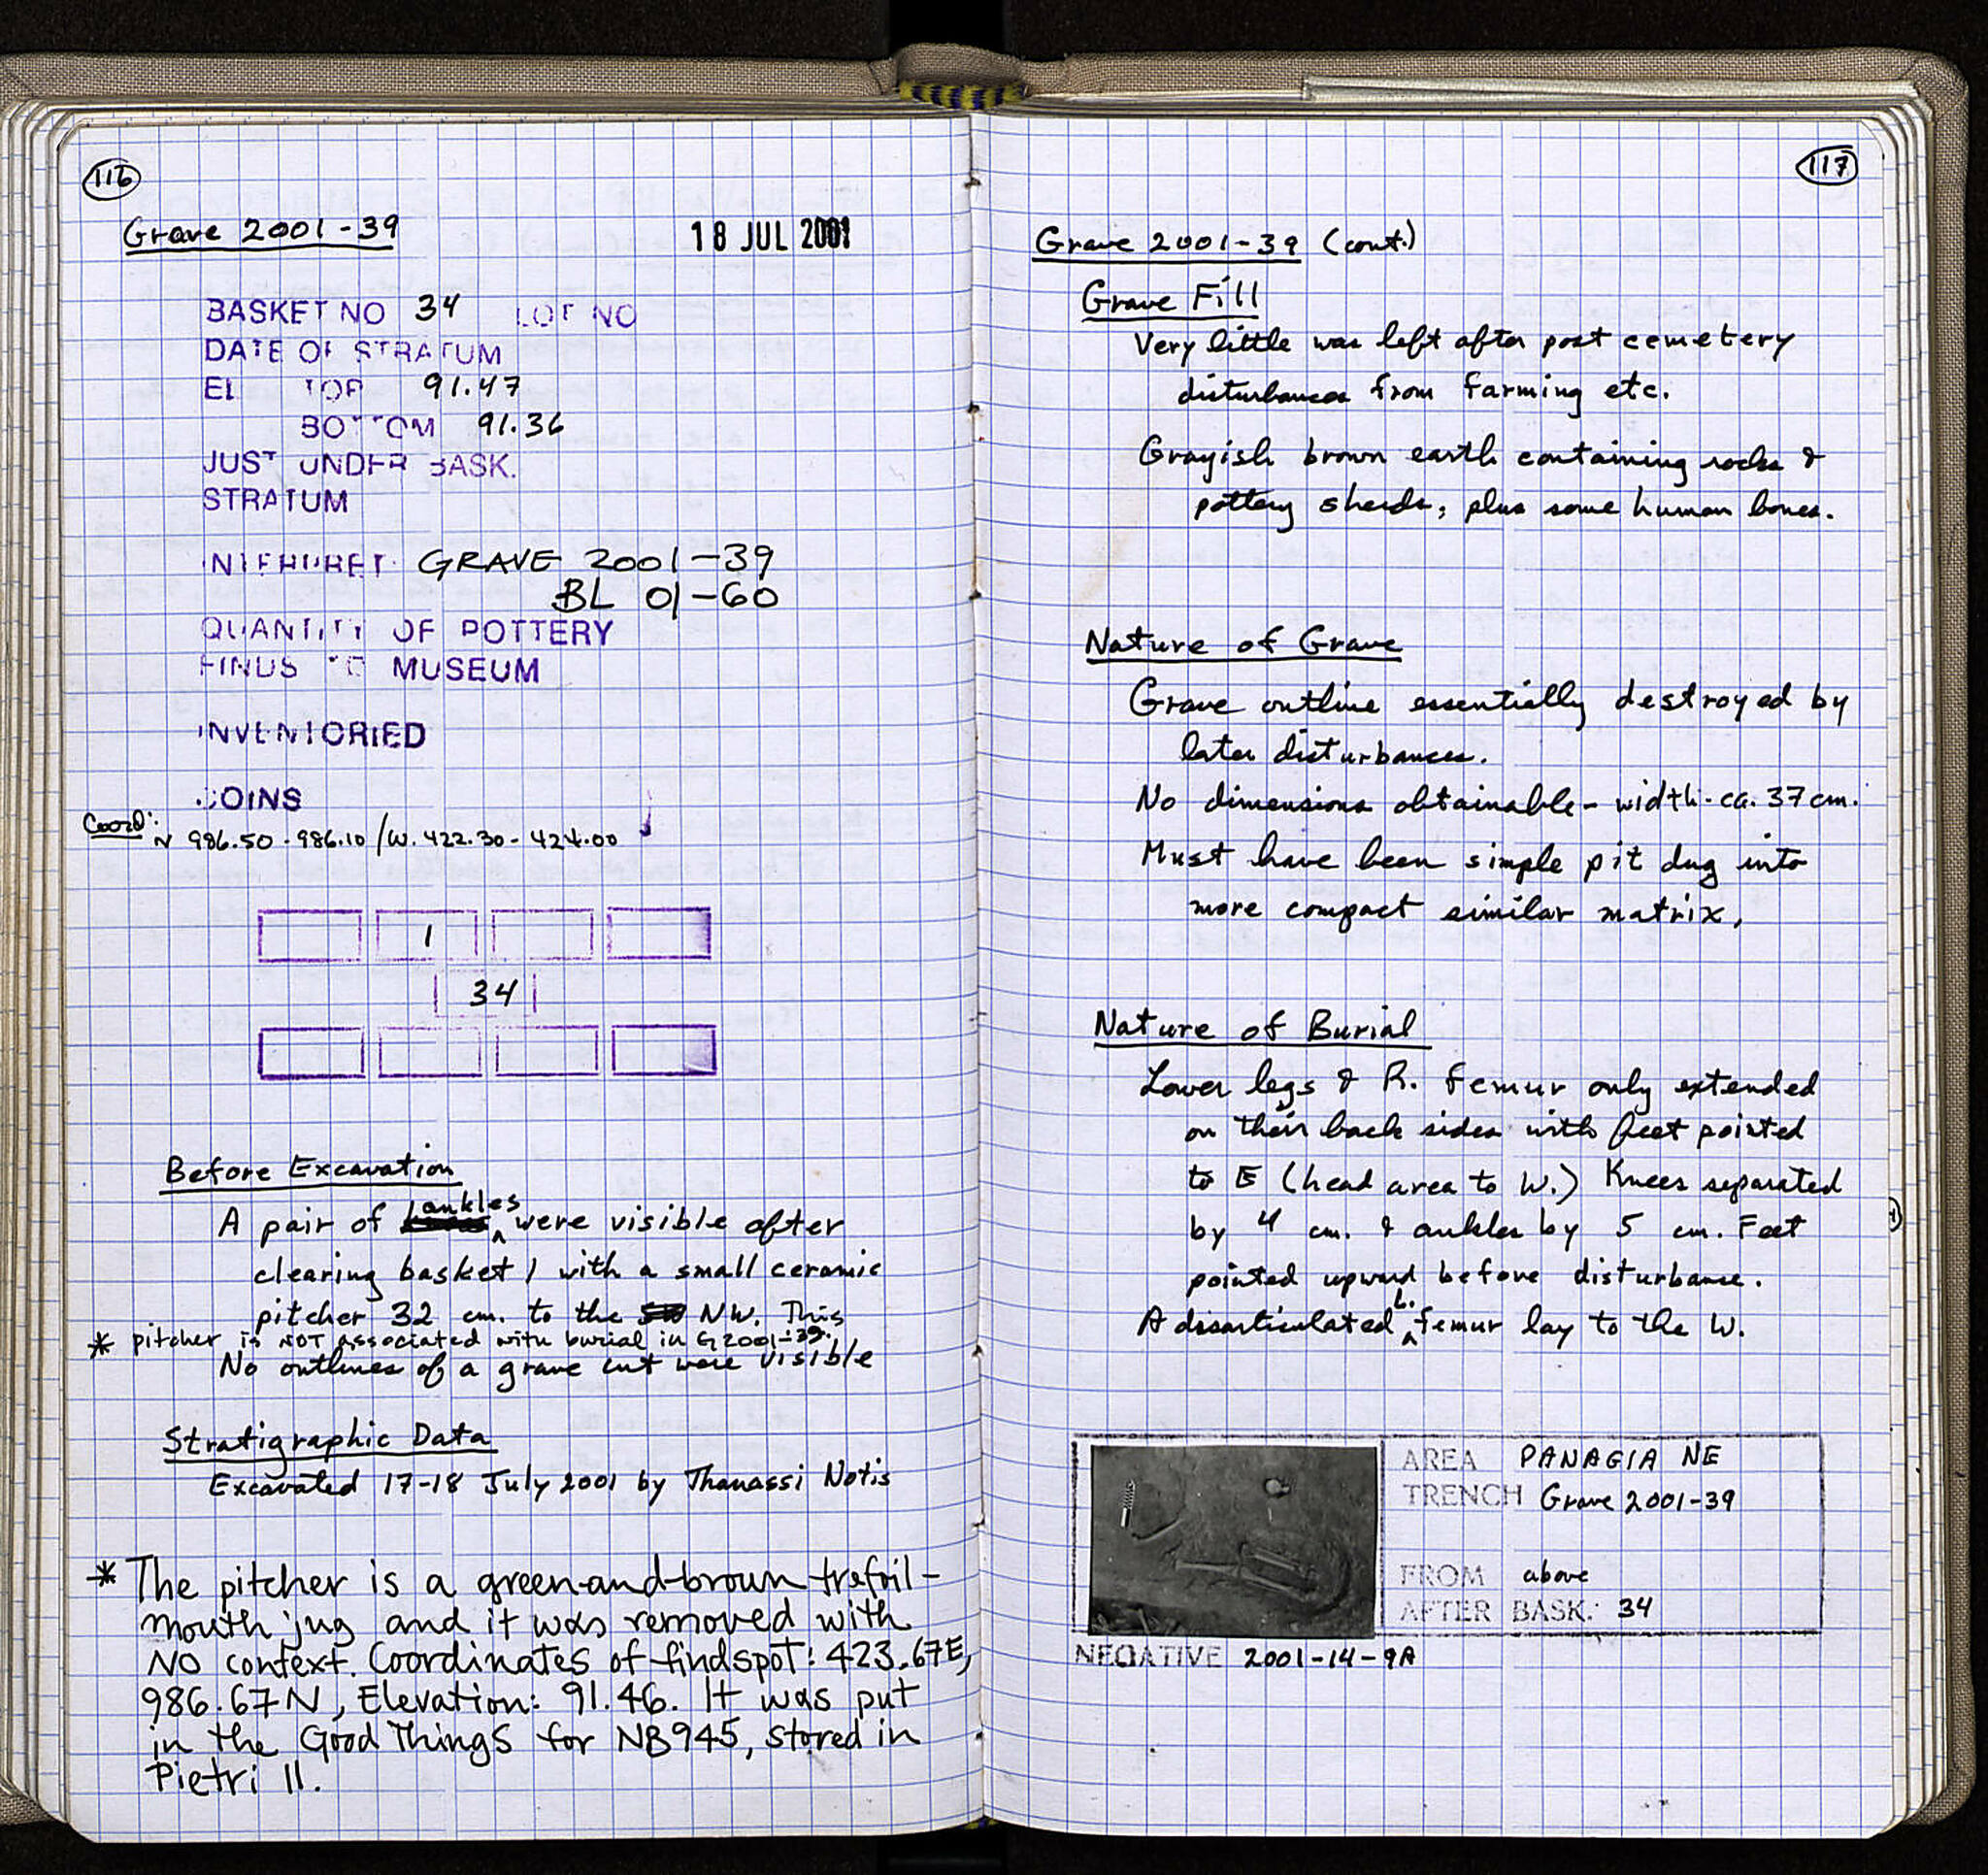 116
Grave 2001-39 18 JUL 2001
BASKET NO 34 LOT NO
DATE OF STRATUM
EL TOP 91.47
BOTTOM 91.36
JUST UNDER BASK.
STRATUM
INTERPRET. GRAVE 2001-39
BL 01-60
QUANTITY OF POTTERY
FINDS TO MUSEUM
INVENTORIED
COINS
Coord:
N 986.50-986.10/W. 422.30-424.00
1
34
Before Excavation
A pair of ankles were visible after
clearing basket 1 with a small ceramic
pitcher 32 cm. to the NW. This
* pitcher is NOT associated with burial in G2001-39.
No outlines of a grave cut were visible
Stratigraphic Data
Excavated 17-18 July 2001 by Thanassi Notis
* The pitcher is a green-and-brown trefoil-
mouth jug and it was removed with
NO context. Coordinates of findspot: 423.67E,
986.67N, Elevation: 91.46. It was put
in the Good Things for NB945, stored in
Pietri II.
117
Grave 2001-39 (cont.)
Grave Fill
Very little was left after post cemetery
disturbances from farming etc.
Grayish brown earth containing rocks &
pottery sherds, plus some human bones.
Nature of Grave
Grave outline essentially destroyed by
later disturbances.
No dimensions obtainable - width - ca. 37 cm.
Must have been simple pit dug into
more compact similar matrix,
Nature of Burial
Lower legs & R. femur only extended
on their back sides with feet pointed
to E (head area to W.) Knees separated
by 4 cm. & ankles by 5 cm. Feet
pointed upward before disturbance.
A disarticulated L. femur lay to the W.
AREA PANAGIA NE
TRENCH Grave 2001-39
FROM above
AFTER BASK. 34
NEGATIVE 2001-14-9A